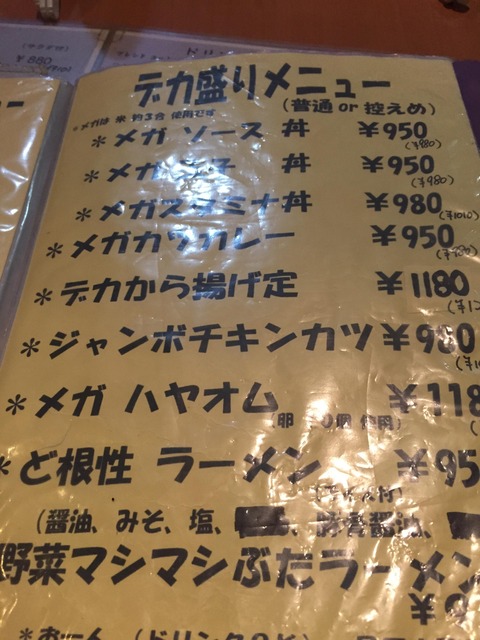 ¥880
デカ盛りメニュー
(普通 or 控えめ)
*メガは 米 約3合 使用です
*メガ ソース 丼 ¥950
(¥980)
*メガ 丼 ¥950
(¥980)
*メガスタミナ丼 ¥980
(¥1010)
*メガカツカレー ¥950
*デカから揚げ定 ¥1180
*ジャンボチキンカツ ¥980
*メガ ハヤオム ¥118
(卵 個 使用)
*ど根性 ラーメン ¥95
(醤油、みそ、塩、 醤油、
野菜マシマシぶたラーメン
¥